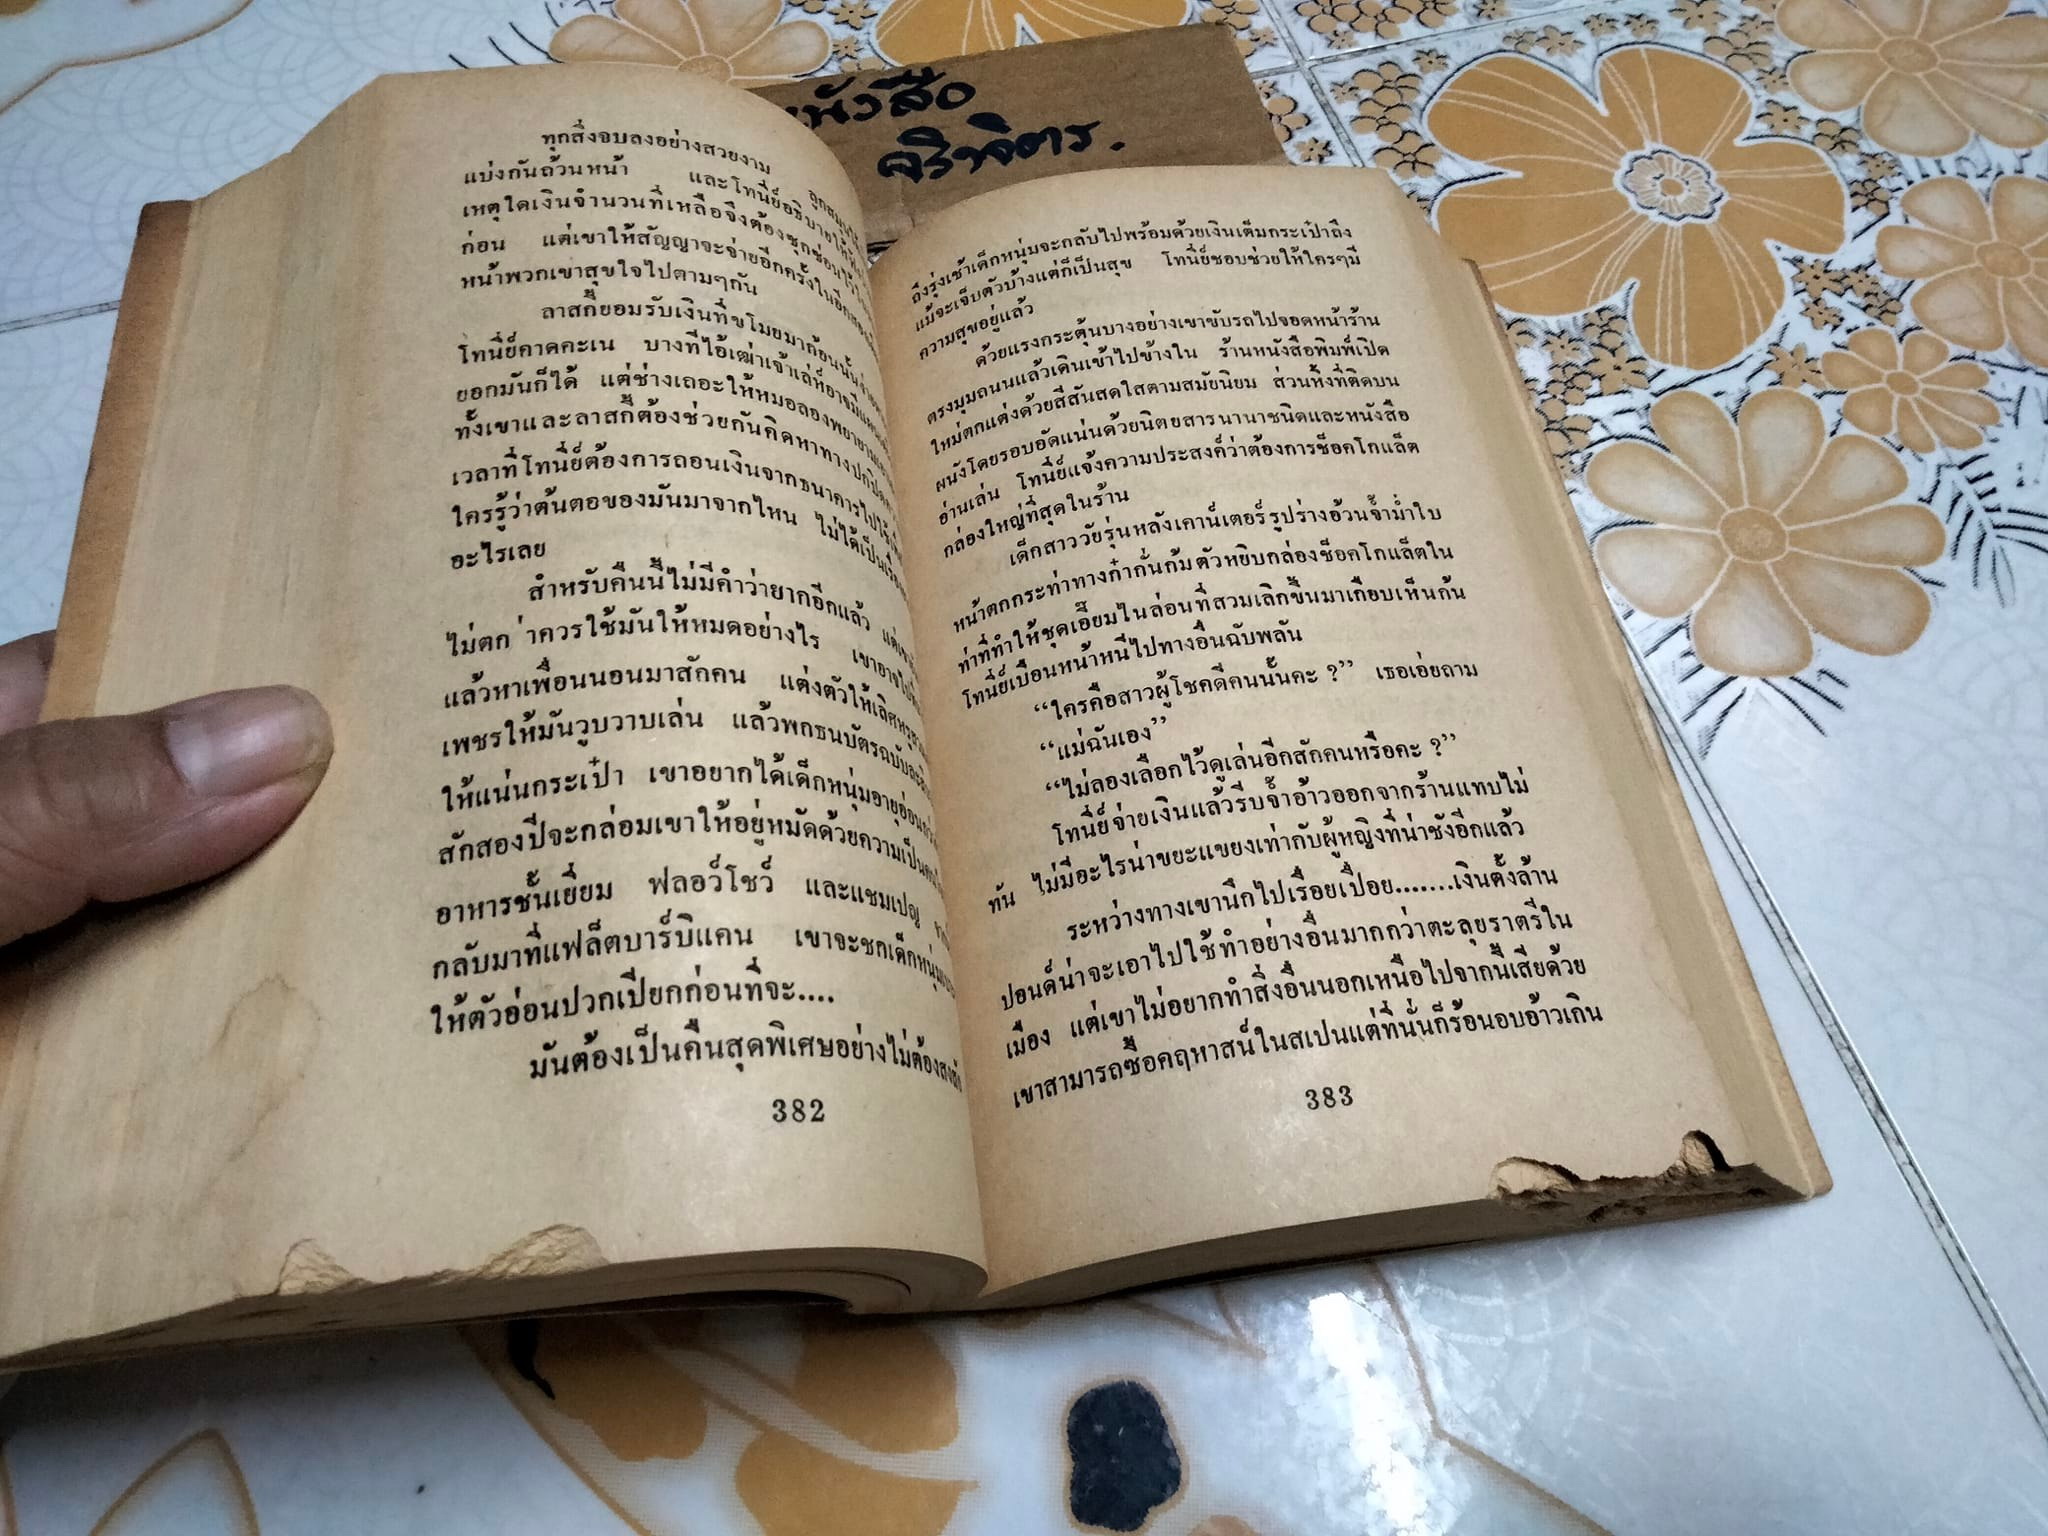 หนังสือ
จริจิตร.
ทุกสิ่งจบลงอย่างสวยงาม
แบ่งกันถ้วนหน้า และโทนี่ย์อธิบายให้
เหตุใดเงินจำนวนที่เหลือจึงต้องซุกซ่อนไว้
ก่อน แต่เขาให้สัญญาจะจ่ายอีกครั้งในอีกสอง
หน้าพวกเขาสุขใจไปตามๆกัน
ลาสกี้ยอมรับเงินที่ขโมยมาก้อนนั้น
โทนี่ย์คาดคะเน บางทีไอ้เฒ่าเจ้าเล่ห์อาจมีแผน
ยอกมันก็ได้ แต่ช่างเถอะให้หมอลองพยายาม
ทั้งเขาและลาสกี้ต้องช่วยกันคิดหาทางปกปิด
เวลาที่โทนี่ย์ต้องการถอนเงินจากธนาคารไปใช้
ใครรู้ว่าต้นตอของมันมาจากไหน ไม่ได้เป็นเรื่อง
อะไรเลย
สำหรับคืนนี้ไม่มีคำว่ายากอีกแล้ว
ไม่ตก ่าควรใช้มันให้หมดอย่างไร เขาอาจไป
แล้วหาเพื่อนนอนมาสักคน แต่งตัวให้เลิศหรู
เพชรให้มันวูบวาบเล่น แล้วพกธนบัตรฉบับละ
ให้แน่นกระเป๋า เขาอยากได้เด็กหนุ่มอายุอ่อนกว่า
สักสองปีจะกล่อมเขาให้อยู่หมัดด้วยความเป็น
อาหารชั้นเยี่ยม ฟลอว์โชว์ และแชมเปญ
กลับมาที่แฟล็ตบาร์บิแคน เขาจะชกเด็กหนุ่ม
ให้ตัวอ่อนปวกเปียกก่อนที่จะ....
มันต้องเป็นคืนสุดพิเศษอย่างไม่ต้องสงสัย
382
ถึงรุ่งเช้าเด็กหนุ่มจะกลับไปพร้อมด้วยเงินเต็มกระเป๋าถึง
แม้จะเจ็บตัวบ้างแต่ก็เป็นสุข โทนี่ย์ชอบช่วยให้ใครๆมี
ความสุขอยู่แล้ว
ด้วยแรงกระตุ้นบางอย่างเขาขับรถไปจอดหน้าร้าน
ตรงมุมถนนแล้วเดินเข้าไปข้างใน ร้านหนังสือพิมพ์เปิด
ใหม่ตกแต่งด้วยสีสันสดใสตามสมัยนิยม ส่วนหิ้งที่ติดบน
ผนังโดยรอบอัดแน่นด้วยนิตยสารนานาชนิดและหนังสือ
อ่านเล่น โทนี่ย์แจ้งความประสงค์ว่าต้องการช็อคโกแล็ต
กล่องใหญ่ที่สุดในร้าน
เด็กสาววัยรุ่นหลังเคาน์เตอร์รูปร่างอ้วนจ้ำม่ำใบ
หน้าตกกระท่าทางก๋ากั่นก้มตัวหยิบกล่องช็อคโกแล็ตใน
ท่าที่ทำให้ชุดเอี๊ยมไนล่อนที่สวมเลิกขึ้นมาเกือบเห็นก้น
โทนี่ย์เบือนหน้าหนีไปทางอื่นฉับพลัน
“ใครคือสาวผู้โชคดีคนนั้นคะ ?” เธอเอ่ยถาม
“แม่ฉันเอง”
“ไม่ลองเลือกไว้ดูเล่นอีกสักคนหรือคะ ?”
โทนี่ย์จ่ายเงินแล้วรีบจ้ำอ้าวออกจากร้านแทบไม่
ทัน ไม่มีอะไรน่าขยะแขยงเท่ากับผู้หญิงที่น่าชังอีกแล้ว
ระหว่างทางเขานึกไปเรื่อยเปื่อย.......เงินตั้งล้าน
ปอนด์น่าจะเอาไปใช้ทำอย่างอื่นมากกว่าตะลุยราตรีใน
เมือง แต่เขาไม่อยากทำสิ่งอื่นนอกเหนือไปจากนี้เสียด้วย
เขาสามารถซื้อคฤหาสน์ในสเปนแต่ที่นั่นก็ร้อนอบอ้าวเกิน
383